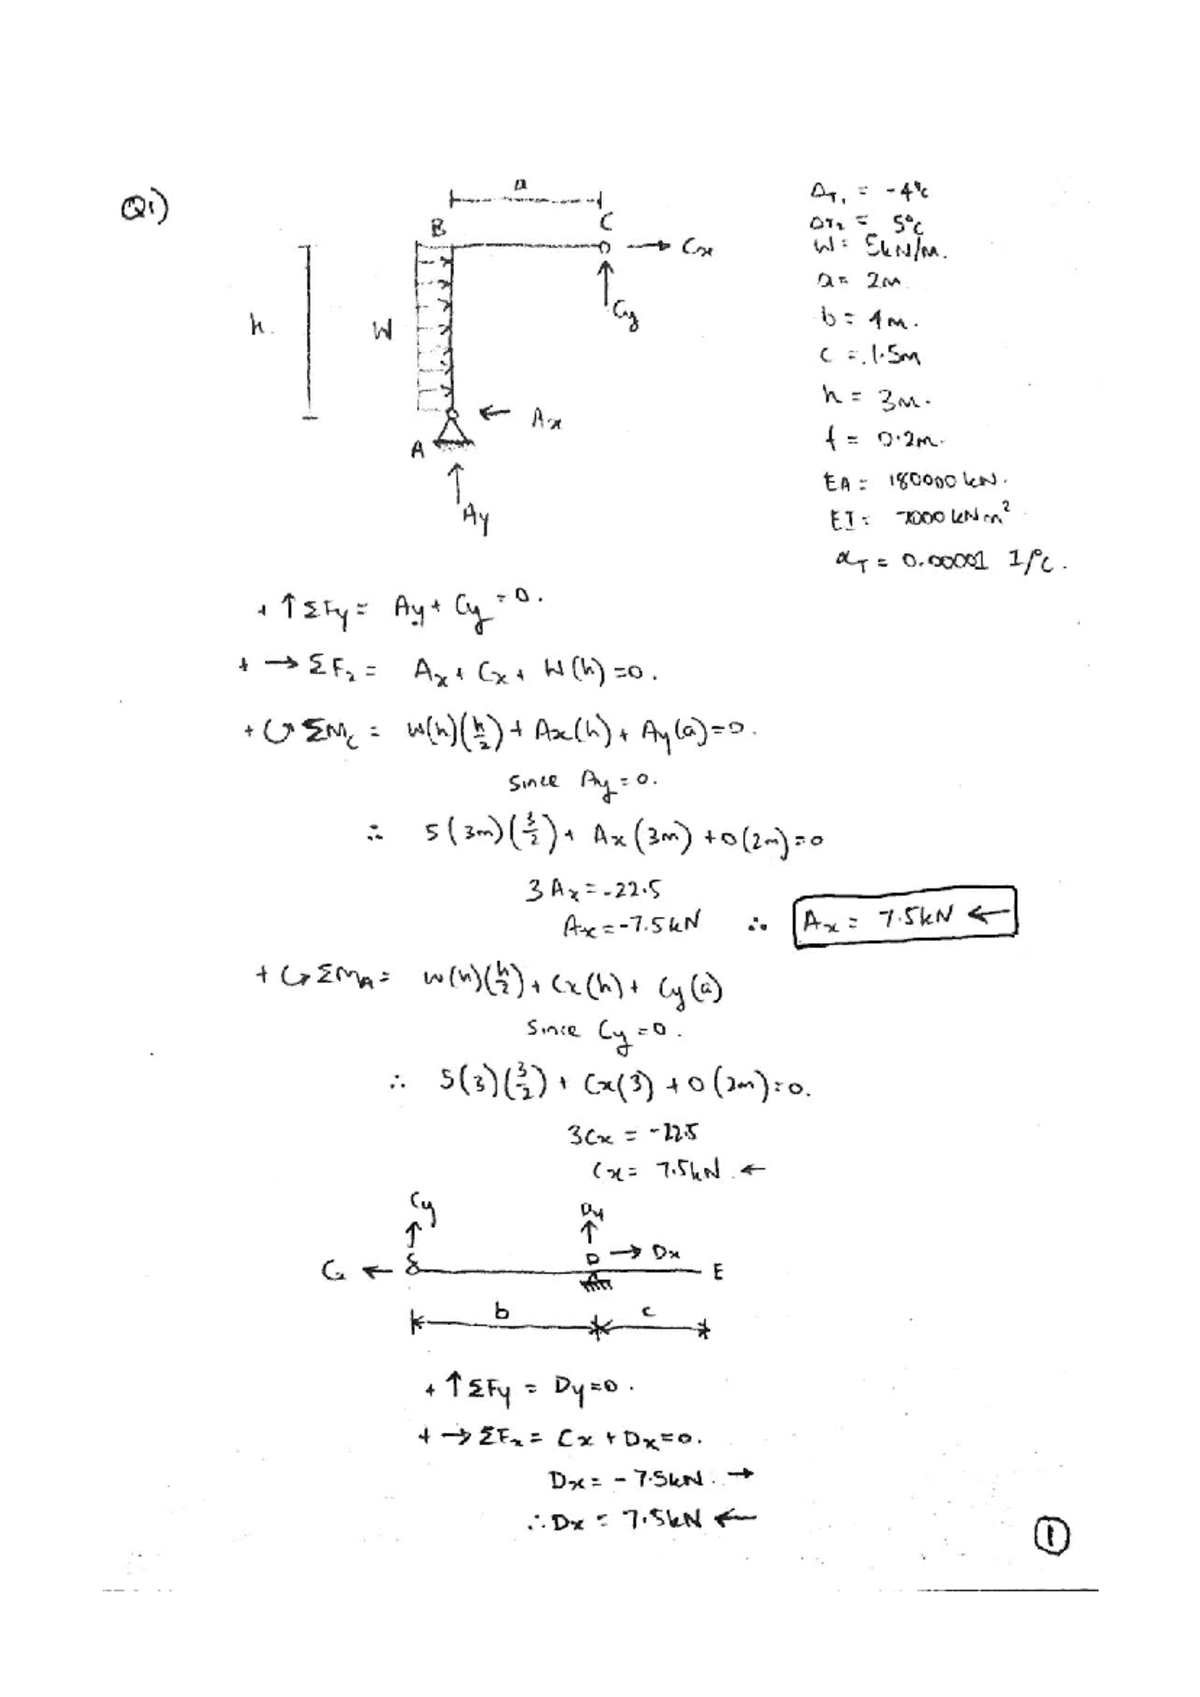 Q1)
a
B
C
Cx
h.
W
Cy
Ax
A
Ay
ΔT1 = -4°C
ΔT2 = 5°C
W = 5kN/m.
a = 2m
b = 4m.
c = 1.5m
h = 3m.
t = 0.2m.
EA = 180000 kN.
EI = 7000 kNm²
αT = 0.00001 1/°C.
+ ↑ ΣFy = Ay + Cy = 0.
+ → ΣFx = Ax + Cx + W(h) = 0.
+ ↺ ΣMc = W(h)(h/2) + Ax(h) + Ay(a) = 0.
Since Ay = 0.
∴ 5(3m)(3/2) + Ax(3m) + 0(2m) = 0
3Ax = -22.5
Ax = -7.5kN ∴ Ax = 7.5kN ←
+ ↺ ΣMA = W(h)(h/2) + Cx(h) + Cy(a)
Since Cy = 0.
∴ 5(3)(3/2) + Cx(3) + 0(2m) = 0.
3Cx = -22.5
Cx = 7.5kN ←
Cy
Dy
Cx
D
Dx
E
b
c
+ ↑ ΣFy = Dy = 0.
+ → ΣFx = Cx + Dx = 0.
Dx = -7.5kN. →
∴ Dx = 7.5kN ←
1